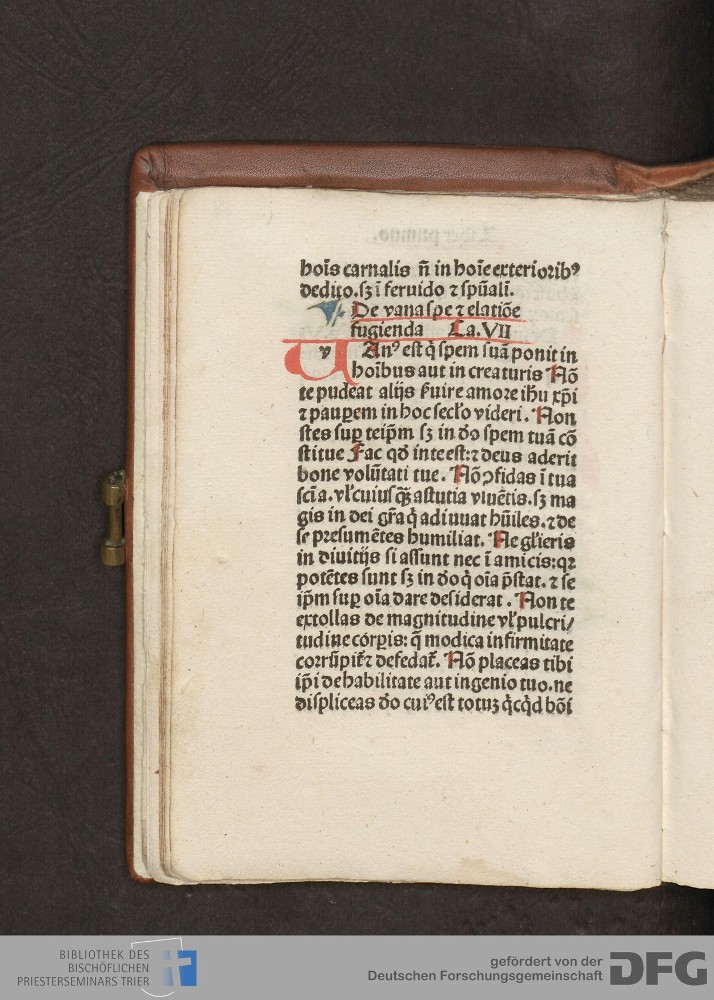 hoı̄s carnalis n̄ in hoı̄e exteriorib⁹
dedito.sꝫ ī feruido ⁊ sp̄uali.
De vana spe ⁊ elatiōe
fugienda Ca.VII
v An⁹ est q̇ spem suā ponit in
hoı̄bus aut in creaturis Nō
te pudeat alijs ẜuire amore ih̄u xp̄i
⁊ paupem in hoc seclo videri. Non
stes sup teip̄m sꝫ in dō spem tuā cō
stitue Fac qd̄ in te est:⁊ deus aderit
bone volūtati tue. Nō ꝯfidas ī tua
scı̄a.vl̓ cuiusq̄ꝫ astutia viuētis.sꝫ ma
gis in dei gr̄a q̇ adiuuat hūiles.⁊ de
se presumētes humiliat. Ne gl̓ieris
in diuitijs si assunt nec ī amicis:qꝛ
potētes sunt sꝫ in dō q̇ oı̄a p̄stat.⁊ se
ip̄m sup oı̄a dare desiderat. Non te
extollas de magnitudine vl̓ pulcri/
tudine corpis: q̄ modica infirmitate
corrūpit̄ ⁊ defedat̄. Nō placeas tibi
ip̄i de habilitate aut ingenio tuo.ne
displiceas dō cui⁹ est totuꝫ q̇cq̇d bōı
BIBLIOTHEK DES
BISCHÖFLICHEN
PRIESTERSEMINARS TRIER
gefördert von der
Deutschen Forschungsgemeinschaft DFG